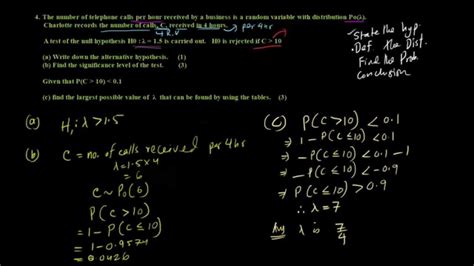 4. The number of telephone calls per hour received by a business is a random variable with distribution Po(λ).
Charlotte records the number of calls, C, received in 4 hours. → per 4hr
↳ R.V
A test of the null hypothesis H0 : λ = 1.5 is carried out. H0 is rejected if C > 10
(a) Write down the alternative hypothesis. (1)
(b) Find the significance level of the test. (3)
Given that P(C > 10) < 0.1
(c) find the largest possible value of λ that can be found by using the tables. (3)
• State the hyp:
• Def. the Dist.
Find the Prob
Conclusion
(a) H₁: λ > 1.5
(b) C = no. of calls received per 4hr
λ = 1.5 × 4
= 6
C ~ Po(6)
P(C > 10)
= 1 - P(C ≤ 10)
= 1 - 0.9574
= 0.0426
(C) P(C > 10) < 0.1
⇒ 1 - P(C ≤ 10) < 0.1
⇒ - P(C ≤ 10) < 0.1 - 1
⇒ - P(C ≤ 10) < -0.9
⇒ P(C ≤ 10) > 0.9
∴ λ = 7
λ is 7/4